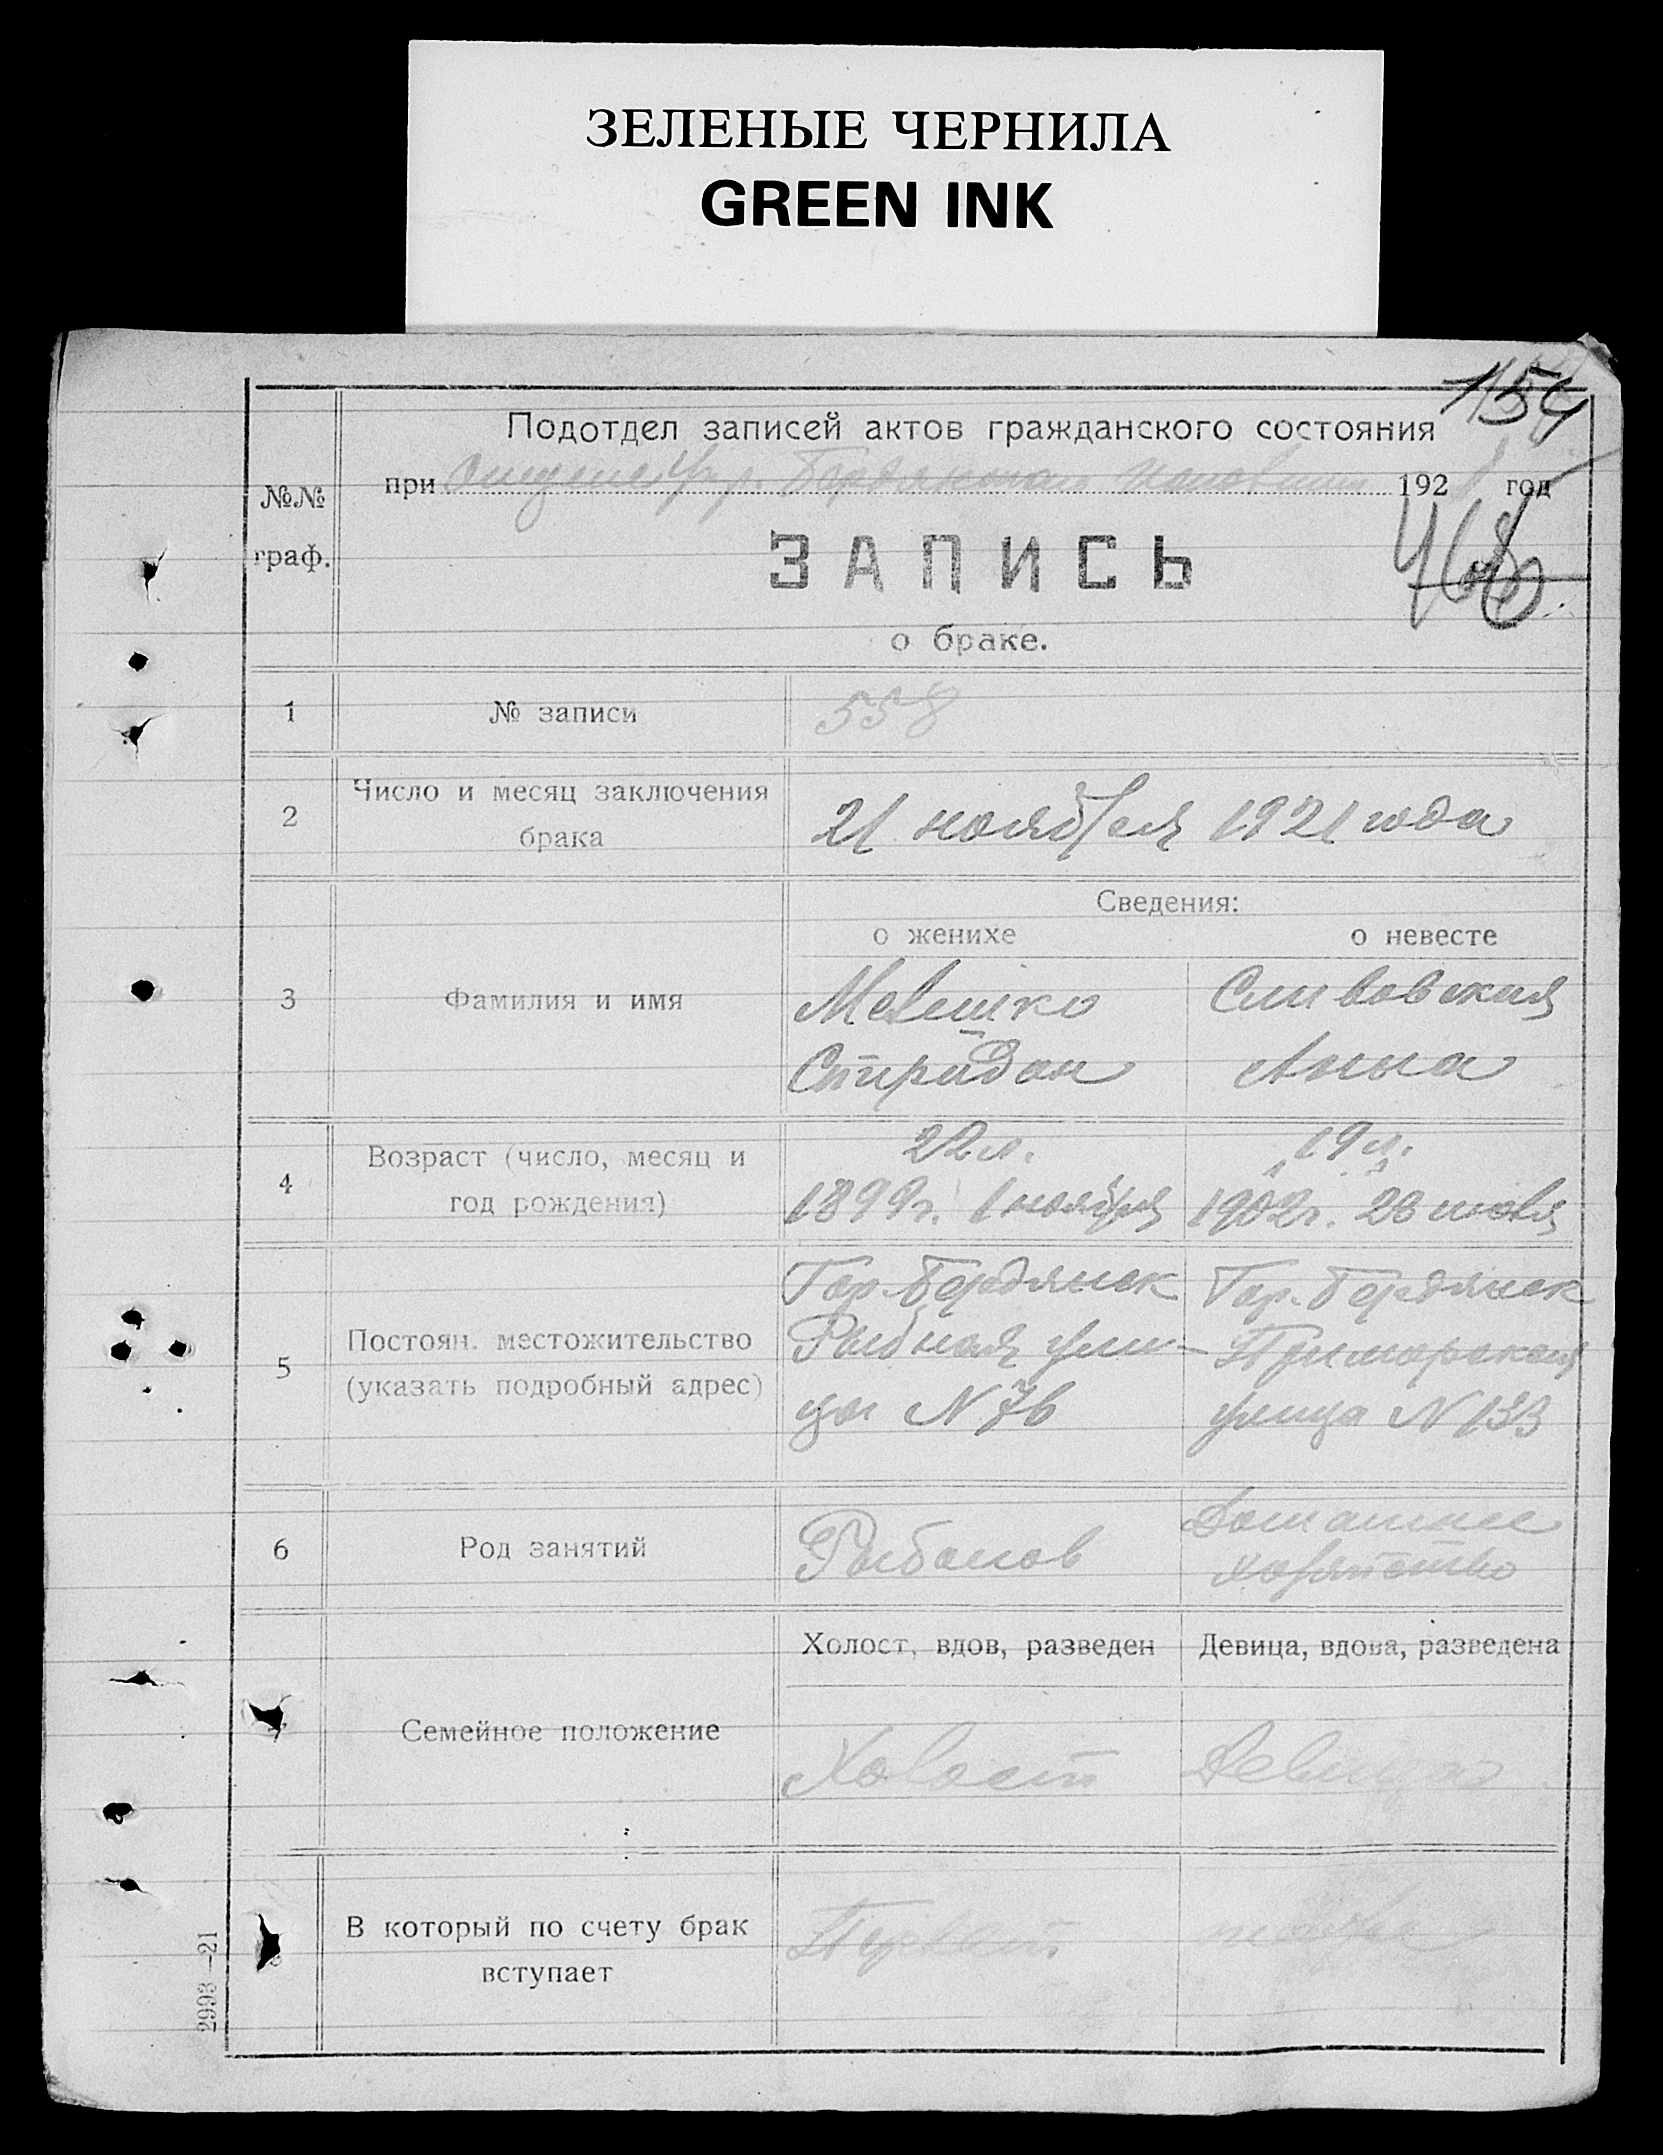 ЗЕЛЕНЫЕ ЧЕРНИЛА
GREEN INK
154
Подотдел записей актов гражданского состояния
при Бердянском 192 год
№№ граф.
ЗАПИСЬ
о браке.
1 № записи 558
2 Число и месяц заключения брака 21 ноября 1921 года
Сведения:
о женихе о невесте
3 Фамилия и имя
Мелешко Сливовская
Спиридон Анна
4 Возраст (число, месяц и год рождения)
22 л. 19 л.
1899 г. 1 ноября 1902 г. 28
5 Постоян. местожительство (указать подробный адрес)
Гор. Бердянск Гор. Бердянск
Рыбная ули- Приморская
ца N 76 улица N 133
6 Род занятий
Рыболов Домашнее
хозяйство
Холост, вдов, разведен Девица, вдова, разведена
7 Семейное положение
Холост Девица
8 В который по счету брак вступает
Первый
2993—21